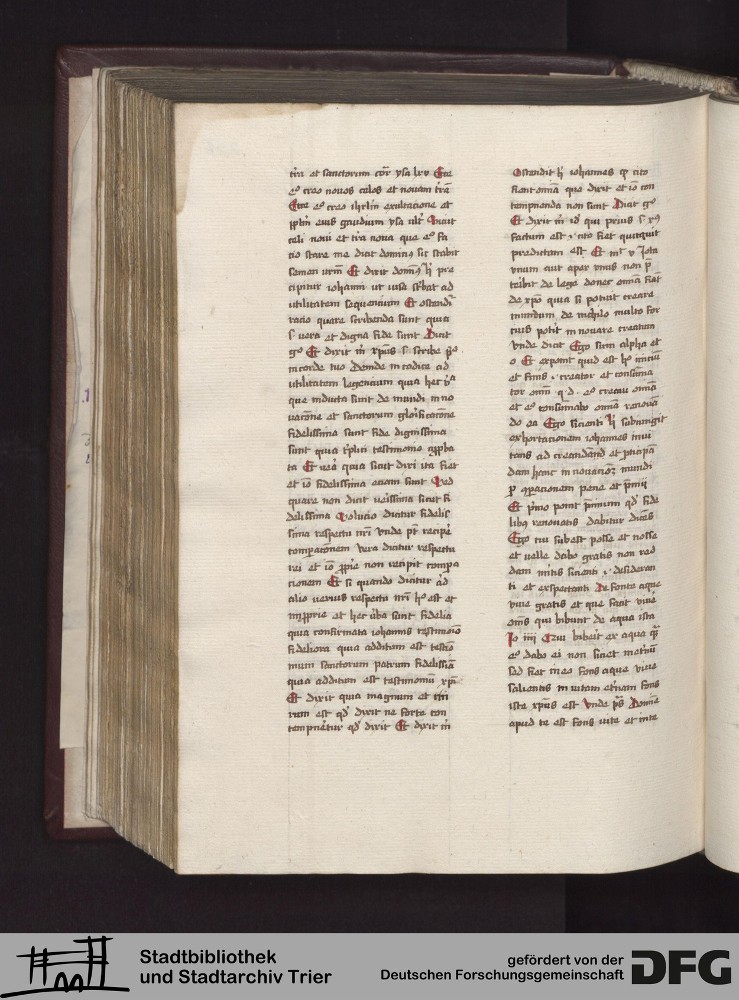 t̄ra et sanctorum cōr ysa lxv Ecce
eº creo novos celos et novam t̄rā
Ecce eº creo ihrl̄m exultacione et
pp̄lm eius gaudium ysa ult̄ Sicut
celi novi et t̄ra nova que eº fa
cio stare me dicit dominꝰ sic stabit
semen vr̄m Et dixit dominꝰ h̄ pre
cipitur iohanni ut visa sc̄bat ad
utilitatem sequencium Et ostendit̄
racio quare scribenda sunt quia
s vera et digna fide sunt Dicit
gº Et dixit m̄ xp̄us s scribe p̄º
in corde tuo Deinde in codice ad
utilitatem legencium quia hec v̄ᵃ
que inducta sunt de mundi inno
vacōne et sanctorum glorificacōne
fidelissima sunt fide dignissima
sunt quia tp̄lici testimonio app̄ba
ta Et vera quia sicut dixi ita fiet
et iō fidelissima etiam sunt Sed
quare non dicit verissima sicut fi
delissima Solucio dicitur fidelis
sima respectu nr̄i vnde pt̄ recipe
comparaconem vera dicitur respectu
rei et iō ꝓprie non recipit compa
cionem Et si quando dicitur ad
alio verius respectu nr̄i hº est et
inꝓprie et hec v̄ba sunt fidelia
quia confirmata iohannis testimōio
fideliora quia additum est testīo
nium sanctorum patrum fidelissīa
quia additum est testimoniū xp̄i
Et dixit quia magnum et mi
rum est qd̄ dixit ne forte con
tempnetur qd̄ dixit Et dixit m̄
Ostendit h̄ iohannes qꝫ cito
fient omīa que dixit et iō con
tempnenda non sunt Dicit gº
Et dixit m̄ id qui prius s xꝰ
factum est i cito fiet quicquit
predictum est Et
vnum aut apex vnus non p̄
teribit de lege donec omīa fiāt
de xp̄o quia si potuit creare
mundum de nichilo multo for
cius potit innovare creatum
vnde dicit Ego sum alpha et
o Et exponit quid est hº iniciū
et finis i creator et consuma
tor omniū q d eº creavi omīa
et eº consumabo omīa renovā
do ea Ego sicienti h̄ subiungit
exhortacionem iohannes invi
tans ad credendū et p̄ticipā
dam hanc innovacioꝫ mundi
ꝑ ꝯparacionem pene et p̄mij
Et primo ponit p̄mium qd̄ fide
libꝫ renovatis dabitur dicēs
Ego cui subest posse et nosse
et velle dabo gratis non red
dam m̄itis sicienti i desideran
ti et exspectanti De fonte aque
vive gratis et que facit vive
om̄s qui bibunt de aqua ista
Io iiii Qui biberit ex aqua quā
eº dabo ei non siciet in et̄nū
sed fiet in eo fons aque vive
salientis in vitam et̄nam fons
iste xp̄us est vnde ps̄ Domīe
apud te est fons vite et in te
Stadtbibliothek
und Stadtarchiv Trier
gefördert von der
Deutschen Forschungsgemeinschaft
DFG